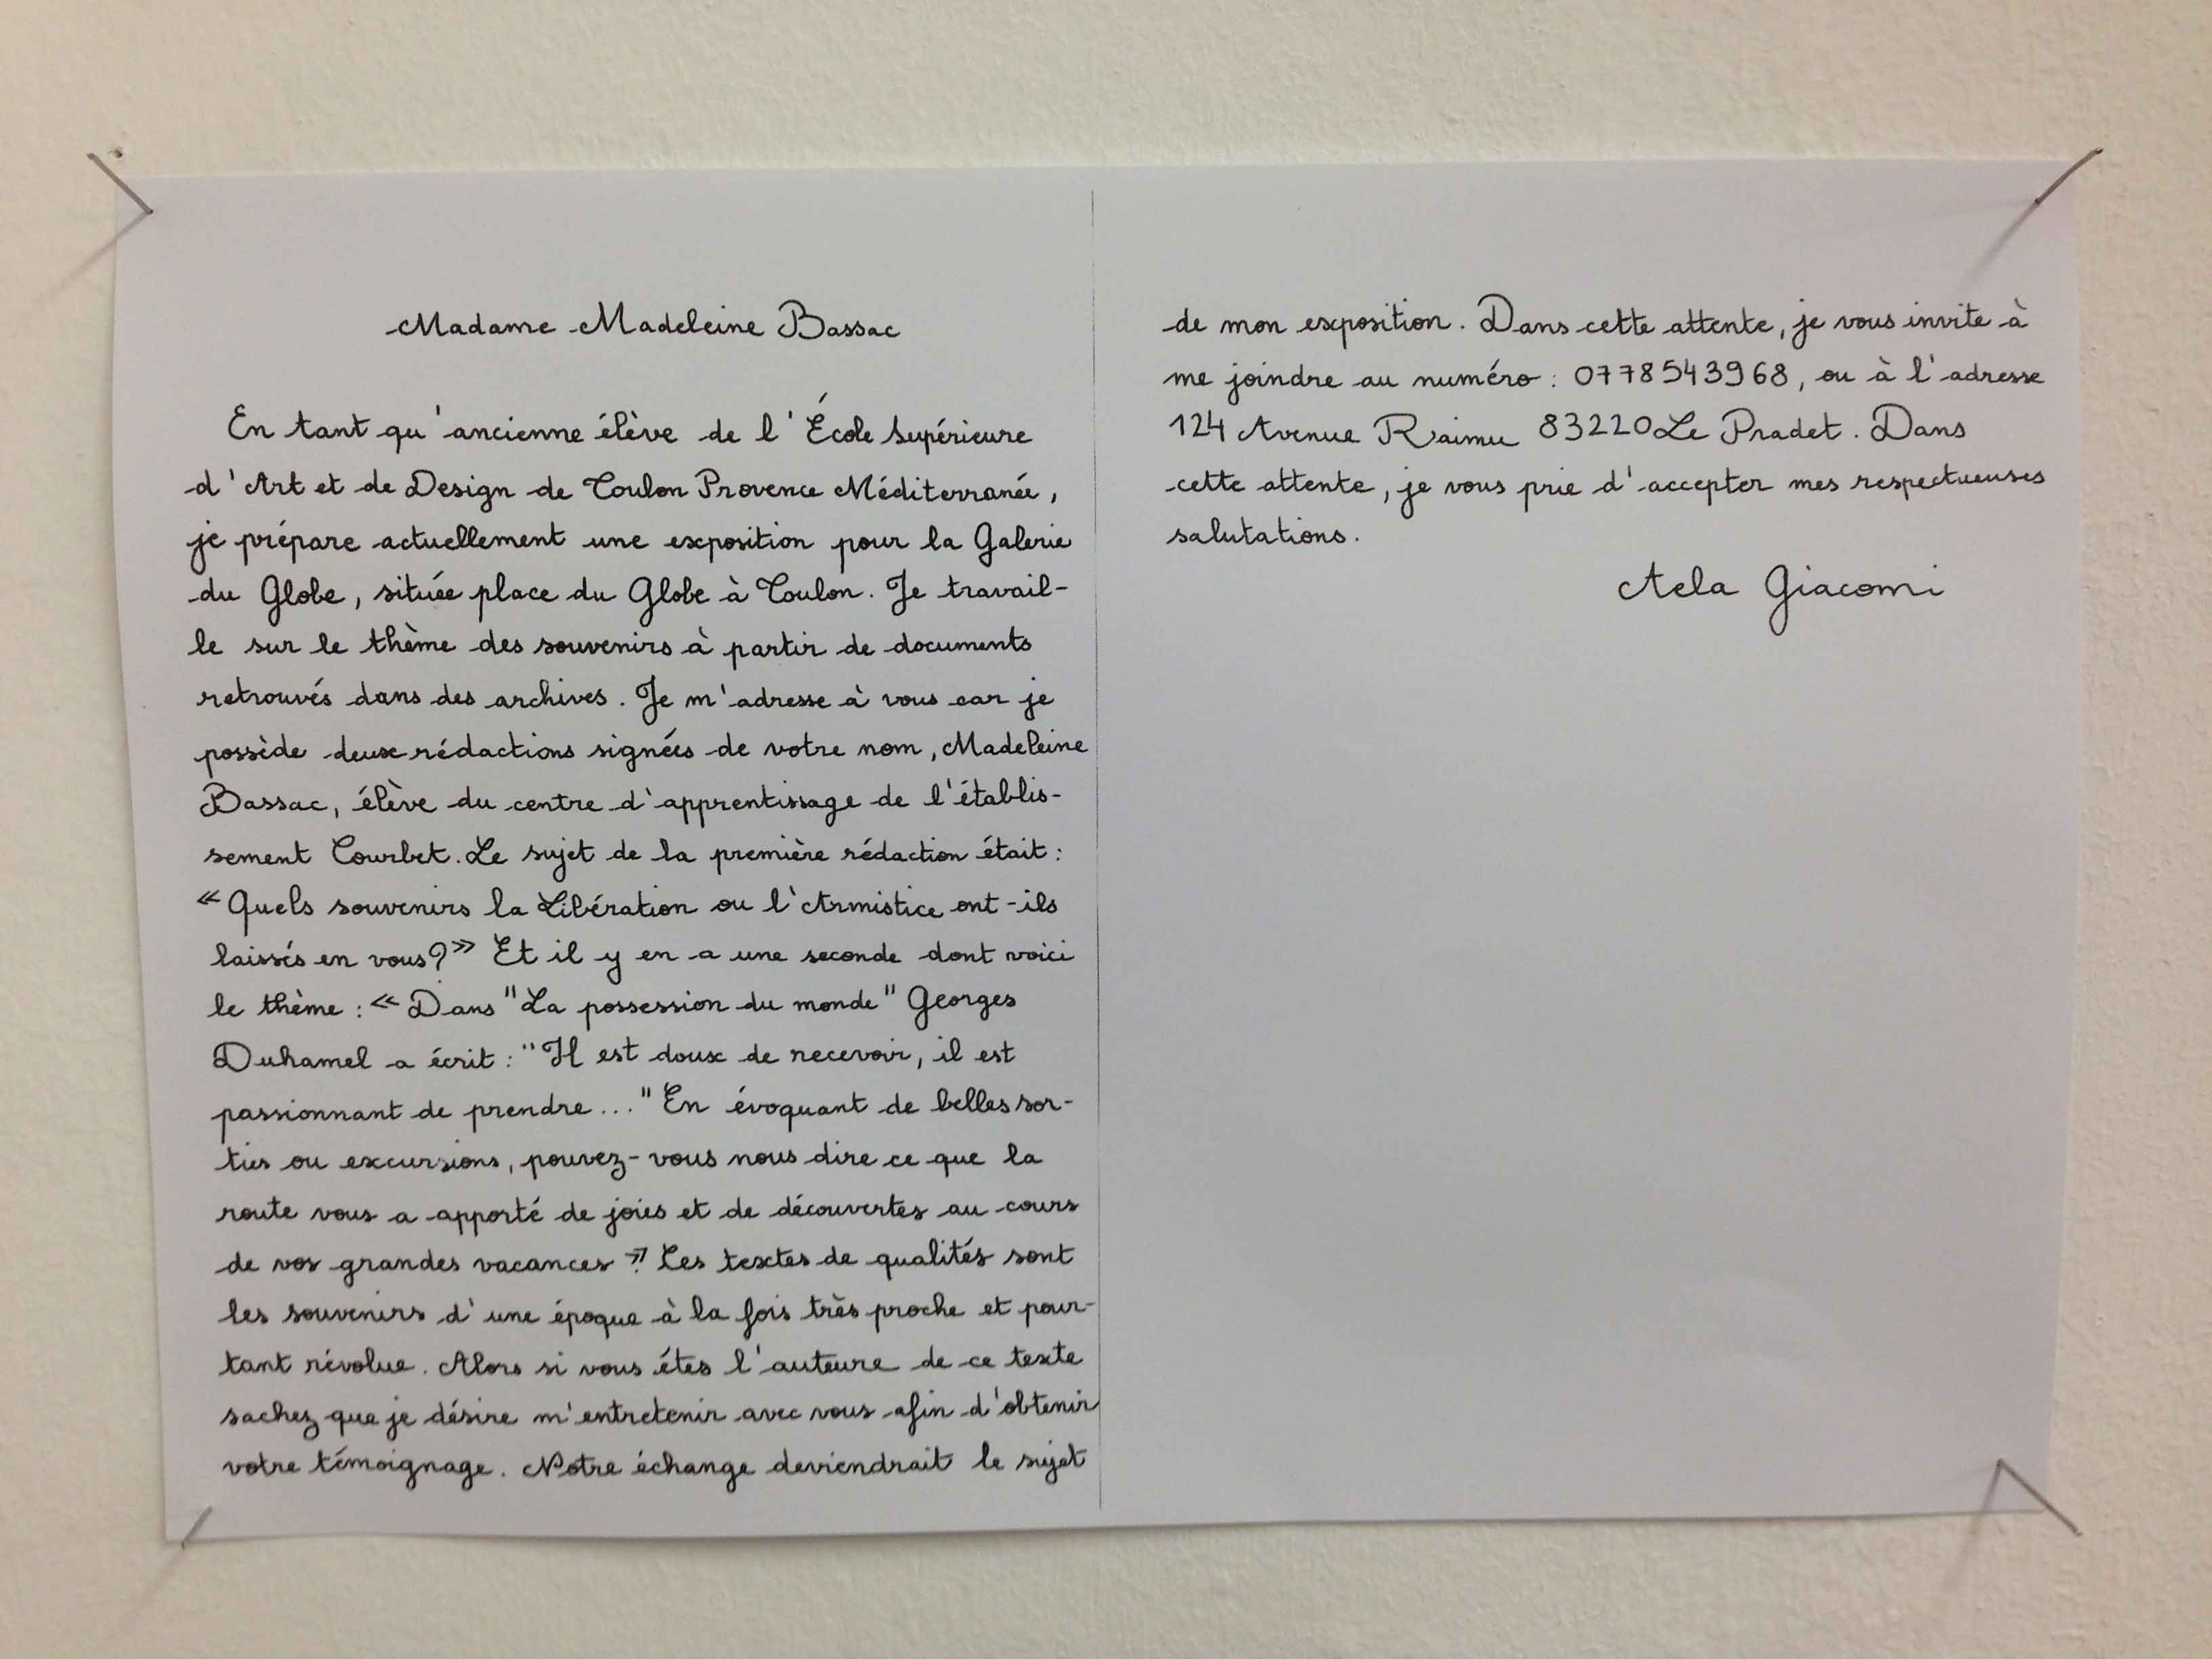 Madame Madeleine Bassac
En tant qu'ancienne élève de l'École Supérieure
d'Art et de Design de Toulon Provence Méditerranée,
je prépare actuellement une exposition pour la Galerie
du Globe, située place du Globe à Toulon. Je travail-
le sur le thème des souvenirs à partir de documents
retrouvés dans des archives. Je m'adresse à vous car je
possède deux rédactions signées de votre nom, Madeleine
Bassac, élève du centre d'apprentissage de l'établis-
sement Courbet. Le sujet de la première rédaction était :
« Quels souvenirs la Libération ou l'Armistice ont-ils
laissés en vous ? » Et il y en a une seconde dont voici
le thème : « Dans "La possession du monde" Georges
Duhamel a écrit : "Il est doux de recevoir, il est
passionnant de prendre..." En évoquant de belles sor-
ties ou excursions, pouvez-vous nous dire ce que la
route vous a apporté de joies et de découvertes au cours
de vos grandes vacances ? » Ces textes de qualités sont
les souvenirs d'une époque à la fois très proche et pour-
tant révolue. Alors si vous êtes l'auteure de ce texte
sachez que je désire m'entretenir avec vous afin d'obtenir
votre témoignage. Notre échange deviendrait le sujet
de mon exposition. Dans cette attente, je vous invite à
me joindre au numéro : 0778543968, ou à l'adresse
124 Avenue Raimu 83220 Le Pradet. Dans
cette attente, je vous prie d'accepter mes respectueuses
salutations.
Aela Giacomi